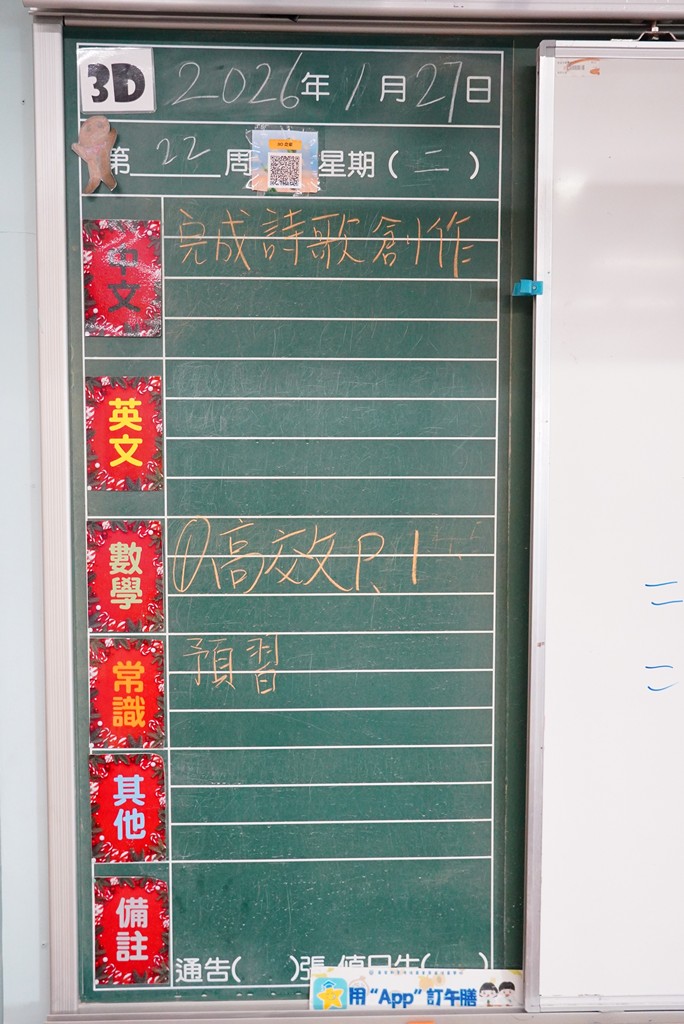 3D 2026年1月27日
第22周 星期(二)
中文 完成詩歌創作
英文
數學 ①高效P.1
常識 預習
其他
備註
通告( )張 值日生( )
用“App”訂午膳